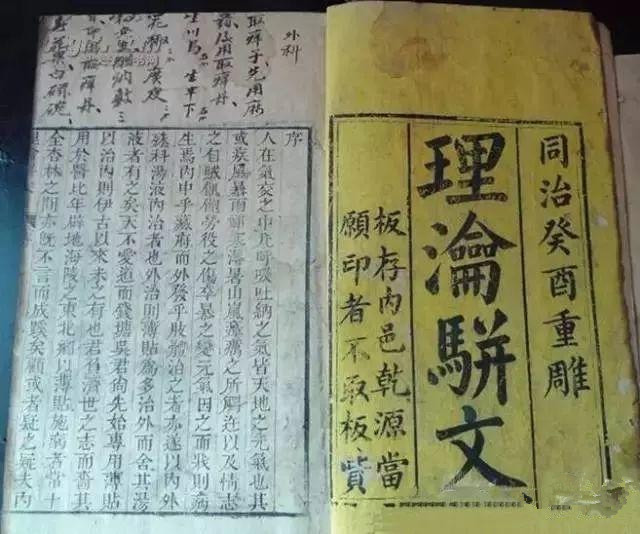 同治癸酉重雕
理瀹駢文
板存內邑乾源當
願印者不取板貲
外科
取痺子先用麻
後用取痺丹
生川烏 生半下
序
人在氣交之中凡呼吸吐納之氣皆天地之元氣也其
或疾風暴雨鬱蒸海暑山嵐瘴癘之所觸迕以及情志
之自賊飢飽勞役之傷卒暴之變元氣因之而戕則病
生焉內中乎藏府而外發乎肢體治之者亦遂以內外
殊科湯液內治者也外治則薄貼爲多治外而舍其湯
液者有之矣天不愛道而錢塘吳君尙先始專用薄貼
以治內則伊古以來未之有也君有濟世之志而嗇其
用於醫比年辟地海陵之東北鄉以薄貼施病者當十
全杏林之間亦旣不言而成蹊矣顧或者疑之疑夫內